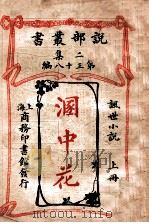 說部叢書
二集
第三十八編
諷世小說
上冊
溷中花
上海商務印書館發行